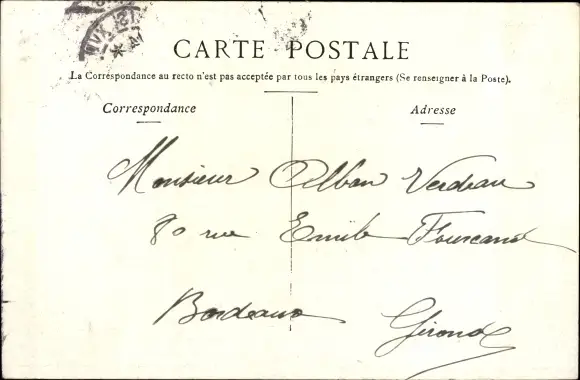 CARTE POSTALE
La Correspondance au recto n'est pas acceptée par tous les pays étrangers (Se renseigner à la Poste).
Correspondance
Adresse
Monsieur Alban Verdeau
80 rue Emile Fourcand
Bordeaux Gironde